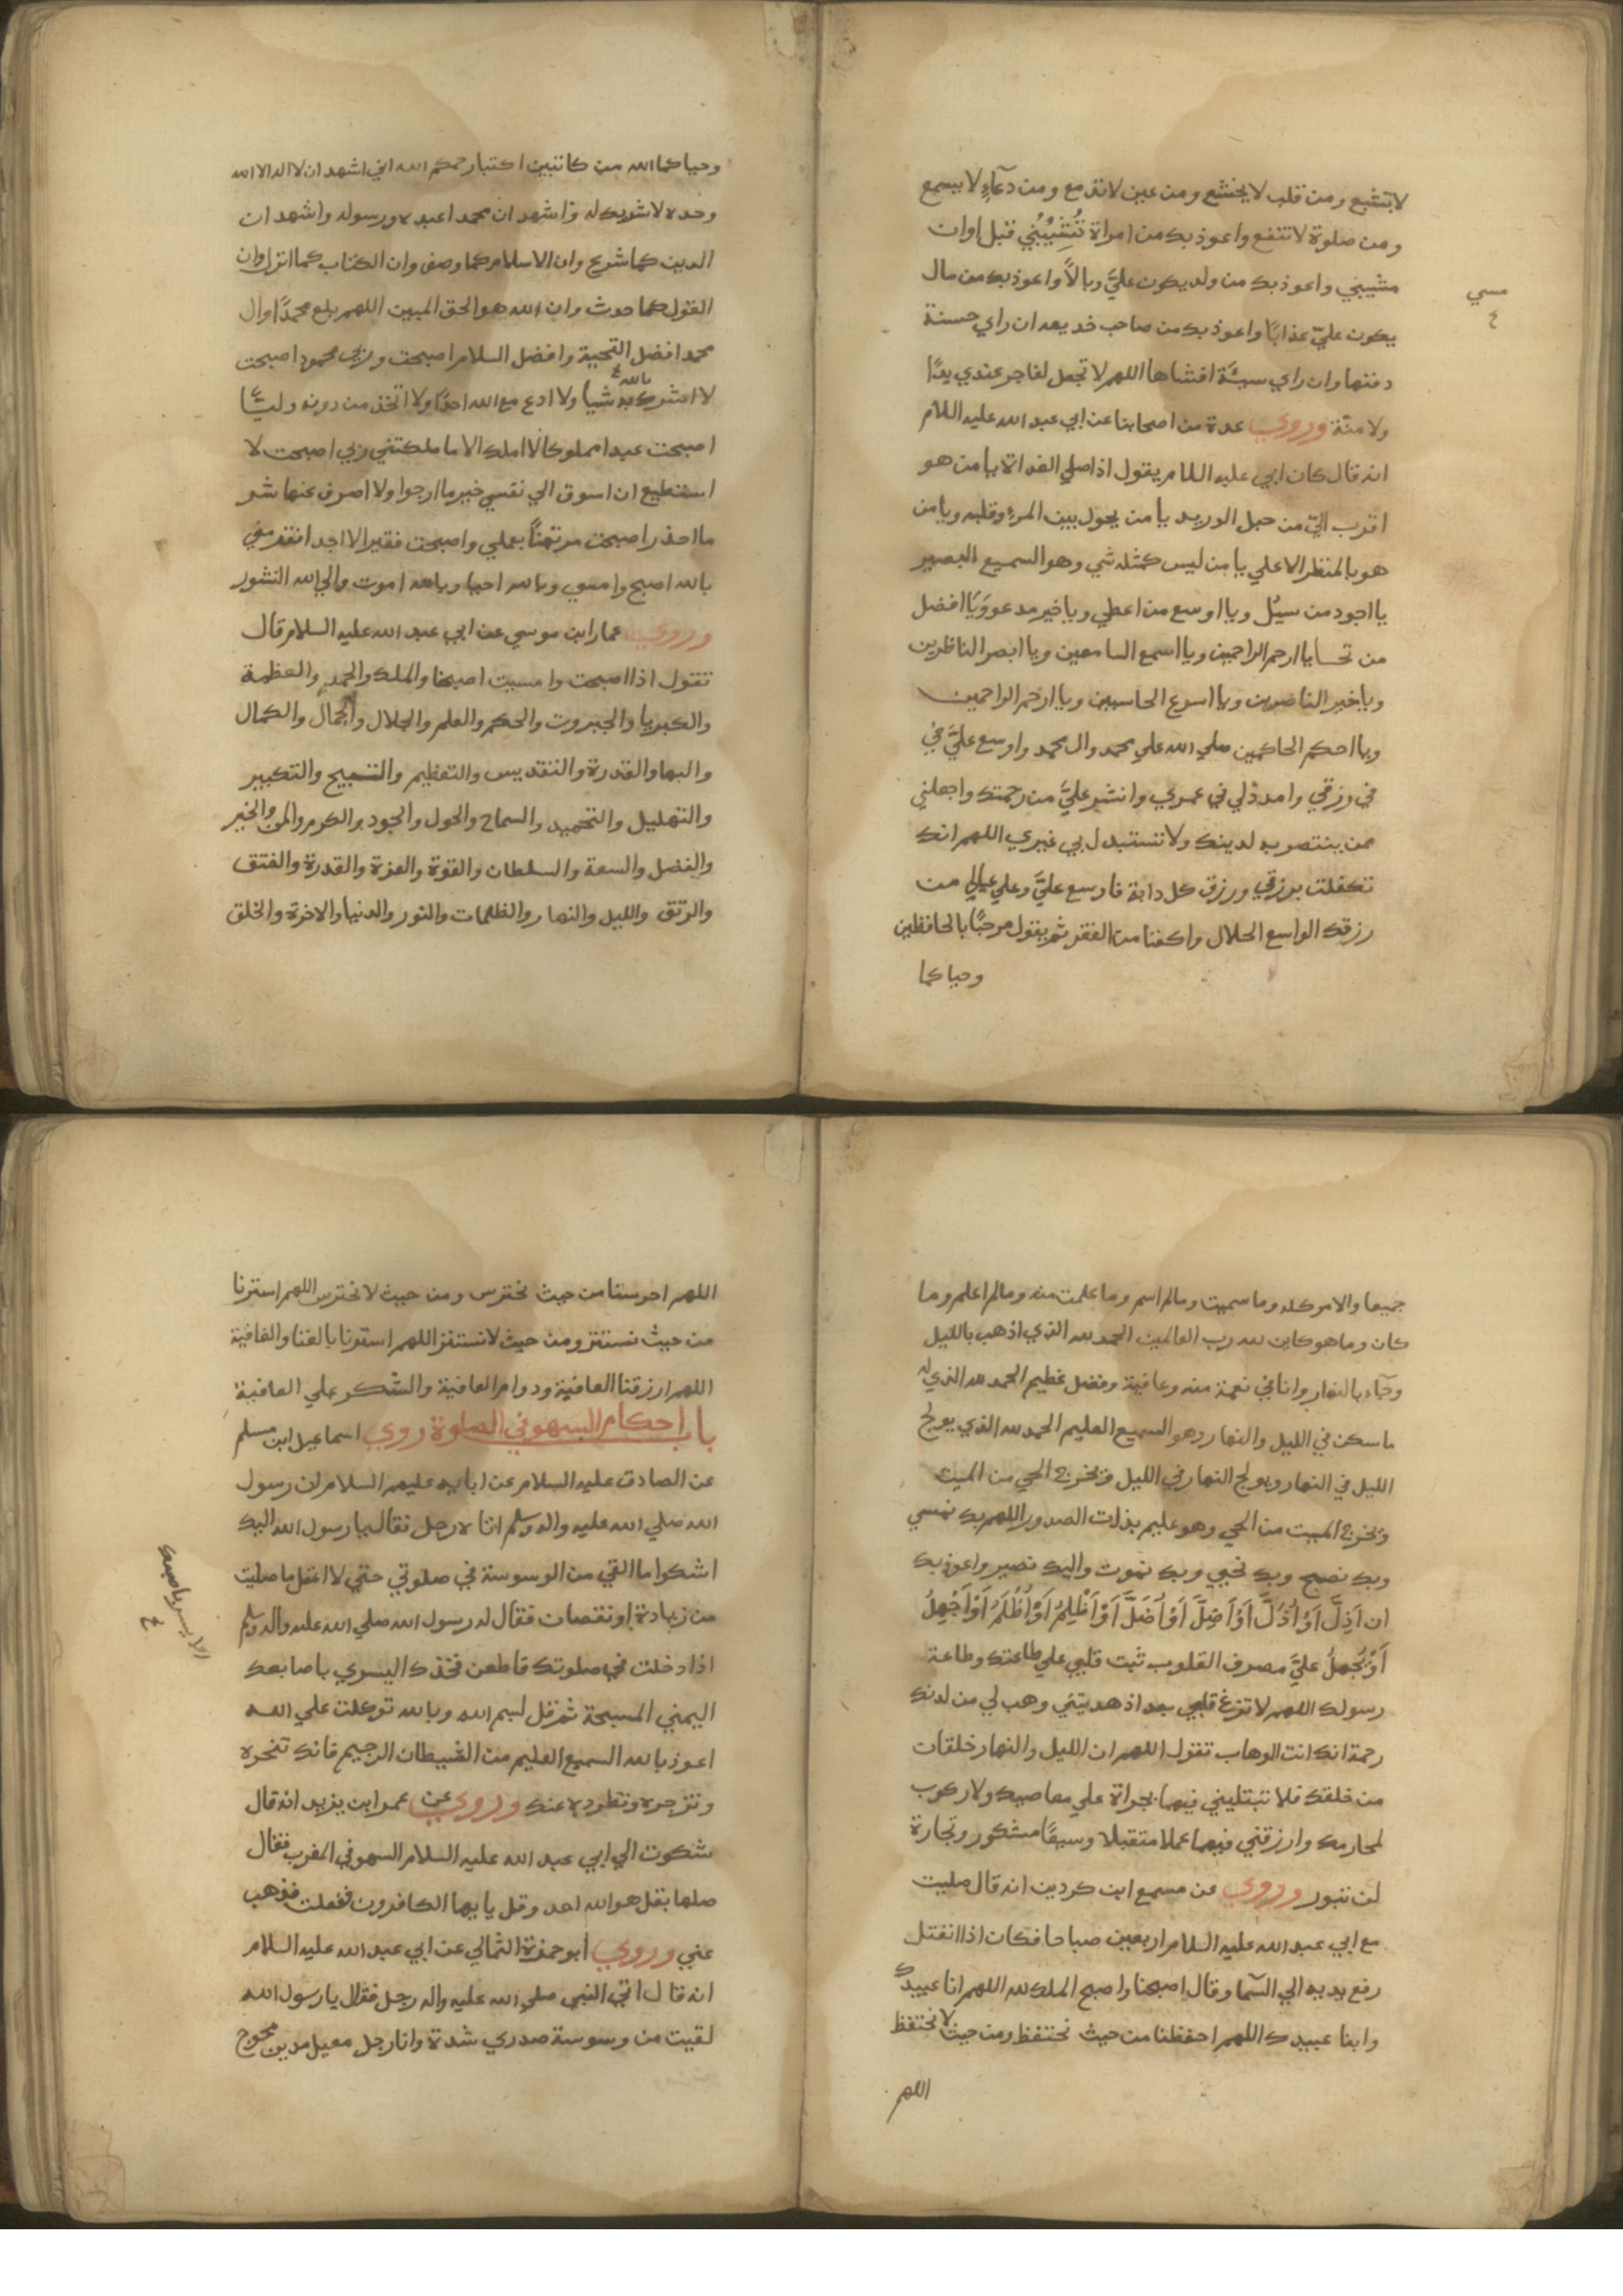 لا تشبع ومن قلب لا يخشع ومن عين لا تدمع ومن دعآءٍ لا يسمع
ومن صلوة لا تنفع واعوذ بك من امراة تُشَيِّبُني قبل اوان
مشيبي واعوذ بك من ولد يكون عليَّ وبالاً واعوذ بك من مال
يكون عليّ عذابًا واعوذ بك من صاحب خديعه ان راي حسنة
دفنها وان راي سيئة افشاها اللهم لا تجعل لفاجر عندي يدًا
ولا منّة وروي عدة من اصحابنا عن ابي عبد الله عليه اللام
انه قال كان ابي عليه اللام يقول اذا صلي الغداة يا من هو
اقرب اليّ من حبل الوريد يا من يحول بين المرءِ وقلبه ويا من
هو بالمنظر الاعلي يا من ليس كمثله شي وهو السميع البصير
يا اجود من سيُل ويا اوسع من اعطي ويا خير مدعو وَيَا افضل
من تحسايا ارحم الراحمين ويا اسمع السامعين ويا ابصر الناظرين
ويا خير الناصرين ويا اسرع الحاسبين ويا ارحم الراحمين
ويا احكم الحاكمين صلي الله علي محمد وال محمد واوسع عليَّ في
في رزقي وامدد لي في عمري وانشر عليَّ من رحمتك واجعلني
ممن ينتصر به لدينك ولا تستبدل بي غيري اللهم انك
تكفلت برزقي ورزق كل دابة فاوسع عليَّ وعلي عيالي من
رزقك الواسع الحلال واكفنا من الفقر ثم يقول مرحبًا بالحافظين
وحياكما
مسي
ع
وحياكما الله من كاتبين اكتبا رحمكم الله اني اشهد ان لا اله الا الله
وحده لا شريك له واشهد ان محمدا عبده ورسوله واشهد ان
الدين كما شرع وان الاسلام كما وصف وان الكتاب كما انزل وان
القول كما حدث وان الله هو الحق المبين اللهم بلغ محمدًا وال
محمد افضل التحية وافضل السلام اصبحت وربي محمود اصبحت
لا اشرك به شيا ولا ادع مع الله احدًا ولا اتخذ من دونه وليًّا
بالله ع
اصبحت عبدا مملوكا لا املك الا ما ملكتني ربي اصبحت لا
استطيع ان اسوق الي نفسي خير ما ارجوا ولا اصرف عنها شر
ما احذر اصبحت مرتهنًا بعملي واصبحت فقيرا لا اجد افقر مني
بالله اصبح وامسي وبالله احيا وبالله اموت والي الله النشور
وروي عمار ابن موسي عن ابي عبد الله عليه السلام قال
تقول اذا اصبحت وامسيت اصبحنا والملك والحمد والعظمة
والكبريا والجبروت والحكم والعلم والجلال والجمال والكمال
والبها والقدرة والتقديس والتعظيم والتسبيح والتكبير
والتهليل والتحميد والسماح والحول والجود والكرم والمن والخير
والفضل والسعة والسلطان والقوة والعزة والقدرة والفتق
والرتق والليل والنهار والظلمات والنور والدنيا والاخرة والخلق
جميعا والامر كله وما سميت وما لم اسم وما علمت منه وما لم اعلم وما
كان وما هو كاين لله رب العالمين الحمد لله الذي اذهب بالليل
وجآء بالنهار وانا في نعمة منه وعافية وفضل عظيم الحمد لله الذي له
ما سكن في الليل والنهار وهو السميع العليم الحمد لله الذي يولج
الليل في النهار ويولج النهار في الليل ويخرج الحي من الميت
ويخرج الميت من الحي وهو عليم بذات الصدور اللهم بك نمسي
وبك نصبح وبك نحيي وبك نموت واليك نصير واعوذ بك
ان اَذِلَّ اَوْ اُذَلَّ اَوْ اَضِلَّ اَوْ اُضَلَّ اَوْ اَظْلِمُ اَوْ اُظْلَمُ اَوْ اَجْهِلُ
اَوْ يُجْهِلُ عليَّ مصرف القلوب ثبت قلبي علي طاعتك وطاعة
رسولك اللهم لا تزغ قلبي بعد اذ هديتني وهب لي من لدنك
رحمة انك انت الوهاب تقول اللهم ان الليل والنهار خلقان
من خلقك فلا تبتليني فيهما بجراة علي معاصيك ولا ركوب
لمحارمك وارزقني فيهما عملا متقبلا وسعيًا مشكور وتجارة
لن تبور وروي عن مسمع ابن كردين انه قال صليت
مع ابي عبد الله عليه السلام اربعين صباحا فكان اذا انفتل
رفع يديه الي السمآ وقال اصبحنا واصبح الملك لله اللهم انا عبيدك
وابنا عبيدك اللهم احفظنا من حيث نحتفظ ومن حيث لا نحتفظ
اللهم
اللهم احرسنا من حيث نحترس ومن حيث لا نحترس اللهم استرنا
من حيث نستتر ومن حيث لا نستتر اللهم استرنا بالغنا والعافية
اللهم ارزقنا العافية ودوام العافية والشكر علي العافية
باب احكام السهو في الصلوة روي اسماعيل ابن مسلم
عن الصادق عليه السلام عن ابايه عليهم السلام ان رسول
الله صلي الله عليه واله وسلم اتاه رجل فقال يا رسول الله اليك
اشكوا ما القي من الوسوسة في صلوتي حتي لا اعقل ما صليت
من زيادة او نقصان فقال له رسول الله صلي الله عليه واله وسلم
اذا دخلت في صلوتك فاطعن فخذك اليسري باصابعك
اليمني المسبحة ثم قل بسم الله وبالله توكلت علي الله
اعوذ بالله السميع العليم من الشيطان الرجيم فانك تنحره
وتزجره وتطرده عنك وروي عن عمر ابن يزيد انه قال
شكوت الي ابي عبد الله عليه السلام السهو في المغرب فقال
صلها بقل هو الله احد وقل يا ايها الكافرون ففعلت فذهب
عني وروي ابو حمزة الثمالي عن ابي عبد الله عليه السلام
انه قال اتي النبي صلي الله عليه واله رجل فقال يا رسول الله
لقيت من وسوسة صدري شدة وانا رجل معيل مدين محوج